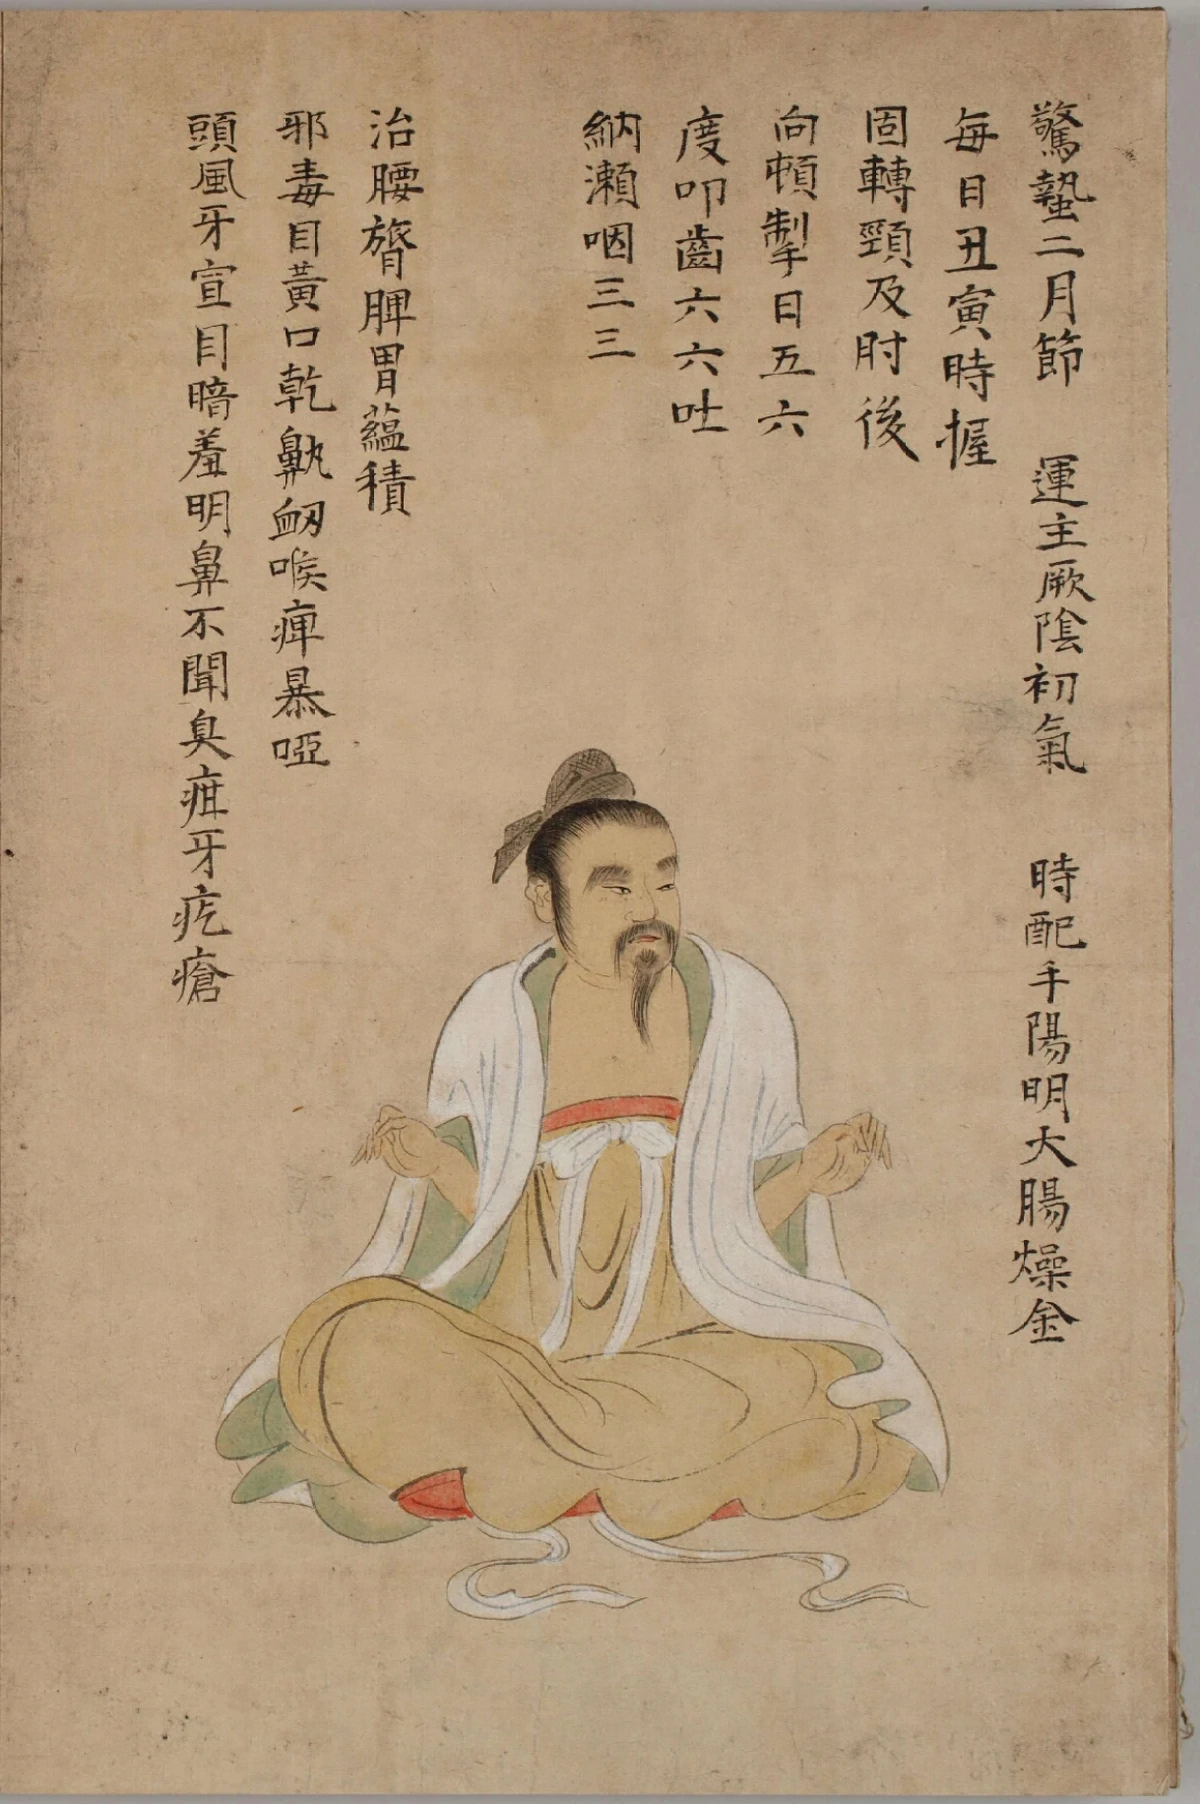 驚蟄二月節 運主厥陰初氣 時配手陽明大腸燥金
每日丑寅時握
固轉頸及肘後
向頓掣日五六
度叩齒六六吐
納瀨咽三三
治腰膂脾胃蘊積
邪毒目黃口乾鼽衂喉痺暴啞
頭風牙宣目暗羞明鼻不聞臭疽牙疙瘡